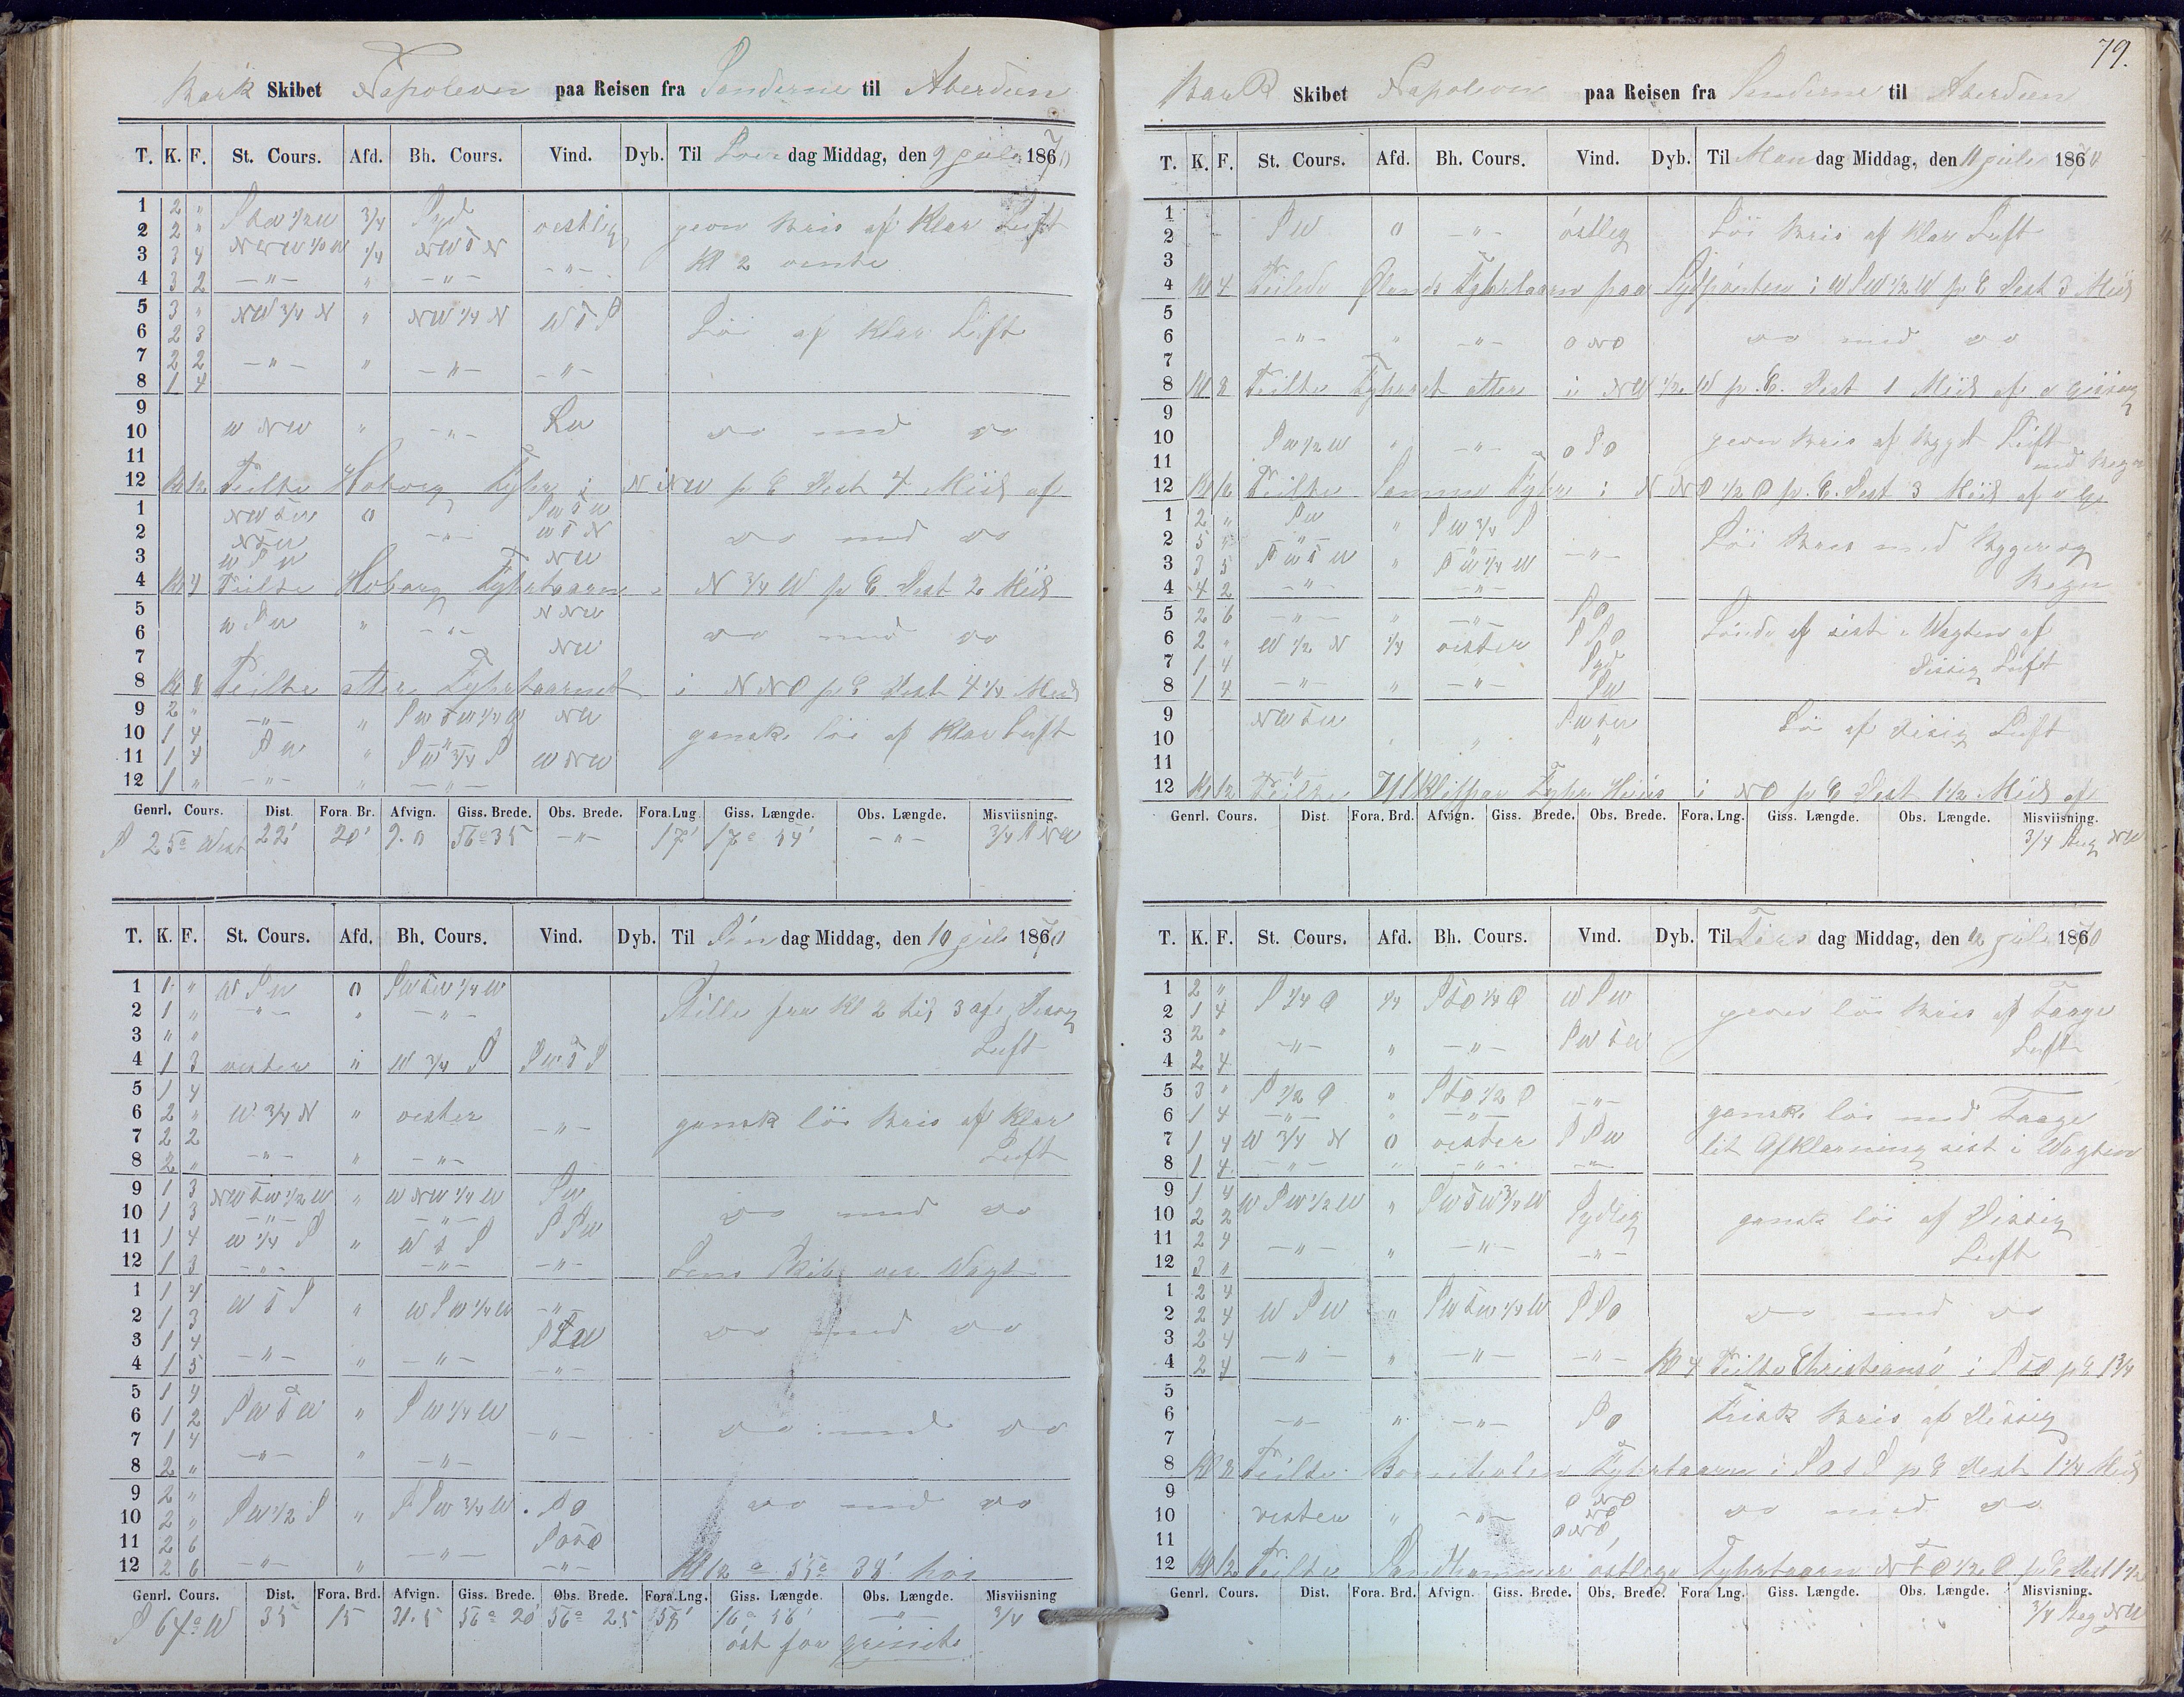 Bark Skibet Napoleon paa Reisen fra Sonderne til Aberdeen
T. K. F. St. Cours. Afd. Bh. Cours. Vind. Dyb. Til dag Middag, den 9 juli 1870
1 2 " 3/4 Syd vestlig jevn Bris af Klar Luft
2 2 "
3 3 4 NWW 1/2 W 1/4 NWTN Kl 2 vente
4 3 2 -"- " -"- -"-
5 3 " NW 3/4 N " NW 1/4 N WTS
6 2 3 Löi af Klar Luft
7 2 2 -"- " -"- -"-
8 1 4
9
10 W NW " -"- do med do
11
12 Kl 12 Peilte Hoborg Fyhr i N NW p C Dest 4 Miil af
1 NWTW 0 SWTW
2 -"- WTN do med do
3 WSW NW
4 Kl 4 Peilte Hoborg Fyhrtaarn i N 3/4 W p C Dest 2 Miil
5 W SW " -"- NNW
6 do med do
7 NW
8 Kl 8 Peilte atter Fyhrtaarnet i NNO p C Dest 4 1/2 Miil
9 2 " -"- " SWTW 1/4 W NW
10 1 4 ganske löi af Klar Luft
11 1 4 SW " SW 3/4 S WNW
12 1 " -"- " -"-
Genrl. Cours. Dist. Fora. Br. Afvign. Giss. Brede. Obs. Brede. Fora.Lng. Giss. Længde. Obs. Længde. Misviisning.
S 25° West 22' 20' 9.0 56° 35 -"- 17' 17° 54' -"- 3/4 NW
T. K. F. St. Cours. Afd. Bh. Cours. Vind. Dyb. Til Sön dag Middag, den 10 juli 1870
1 1 " W SW 0 SWTW 1/4 W
2 1 " -"- " -"- Stille fra Kl 2 til 3 af
3 " " Luft
4 1 3 vester " W 3/4 S SWTS
5 1 4
6 2 " W 3/4 N " vester ganske löi Bris af Klar
7 2 2 -"-
8 2 " -"- " -"- Luft
9 1 3 NWTW 1/2 W " WNW 1/4 W SW
10 1 3 -"- -"- do med do
11 1 4 W 1/4 S " WTS SSW
12 1 3 -"- -"- -"- Lens Skib ver Wagt
1 1 4
2 1 3 WTS " WSW 1/4 W -"-
3 1 4 do med do
4 1 5 -"- " -"- -"-
5 1 4
6 1 2 SWTW " SW 1/4 W
7 1 4 -"- do med do
8 2 " -"- " -"-
9 2 "
10 2 " SW 1/2 S " SSW 3/4 W SO do med do
11 2 6 -"-
12 2 6 -"- " -"- Kl 12
Genrl. Cours. Dist. Fora. Brd. Afvign. Giss. Brede. Obs. Brede. Fora.Lng. Giss. Længde. Obs. Længde. Misviisning
S 64° W 35 15 31.5 56° 20 56° 25 58' 16° 56' -"- 3/4
öst for
79.
Bark Skibet Napoleon paa Reisen fra Sonderne til Aberdeen
T. K. F. St. Cours. Afd. Bh. Cours. Vind. Dyb. Til Man dag Middag, den 11 juli 1870
1
2 SW 0 -"- östlig Löi Bris af Klar Luft
3
4 Kl 4 Peilede Ølands Fyhrtaarn paa Sydpönten i WSW 1/2 W p C Dest 3 Miil
5
6 -"- " -"- ONO do med do
7
8 Kl 8 Peilte Fyhret atter i NW 1/2 W p. C. Dest 1 Miil af
9
10 SW 1/2 W " -"- OSO jevn Bris af Bygget Luft
11 med Regn
12 Kl 12 Peilte Samme Fyhr i NNO 1/2 O p. C. Dest 3 Miil af
1 2 " SW " SW 3/4 S
2 5 " Löi Bris med Byger og
3 3 5 SWTW " SW 1/4 W -"-
4 4 2 -"- -"- Regn
5 2 6 -"- " -"- SO
6 2 " W 1/2 N 1/4 vester SSO sist i Wagten af
7 1 4 Syd Dissig Luft
8 1 4 -"- " -"- SW
9 NWTW SWTW
10 " " Löi af disig Luft
11 "
12 Kl 12 Peilte Fyhr i NO p C Dest 1 1/2 Miil af
Genrl. Cours. Dist. Fora. Brd. Afvign. Giss. Brede. Obs. Brede. Fora.Lng. Giss. Længde. Obs. Længde. Misviisning.
3/4 Streg NW
T. K. F. St. Cours. Afd. Bh. Cours. Vind. Dyb. Til Tirs dag Middag, den 12 juli 1870
1 2 " S 1/4 O 1/4 STO 1/4 O WSW
2 1 4 jevn löi Bris af Taage
3 2 " SWTW
4 2 4 -"- " -"- Luft
5 3 " S 1/2 O " STO 1/2 O -"-
6 1 4 -"- -"- ganske löi med Taage
7 1 4 W 3/4 N 0 vester SSW lit Afklarning sist i Wagten
8 1 4 -"- " -"- -"-
9 1 4 WSW 1/2 W " SWTW 3/4 W Sydlig
10 2 2 ganske löi af Dissig
11 2 4 -"- -"- -"-
12 3 " " Luft
1 2 4
2 2 4 WSW " SWTW 1/4 W SSO do med do
3 2 4
4 2 4 -"- " -"- -"- Kl 4 Peilte Christiansö i STO p C 1 3/4
5
6 -"- " -"- SO Frisk Bris af Dissig
7
8 Kl 8 Peilte Bornholm Fyhrtaarn i p C Dest 1 1/4 Miil
9 ONO
10 vesten " -"- NO do med do
11 ONO
12 Kl 12 Peilte Sandhammer östlige Fyhrtaarn NTO 1/2 O p C Dest 1 1/2
Genrl. Cours. Dist. Fora. Brd. Afvign. Giss. Brede. Obs. Brede. Fora Lng. Giss. Længde. Obs. Længde. Misvisning.
3/4 Streg NW